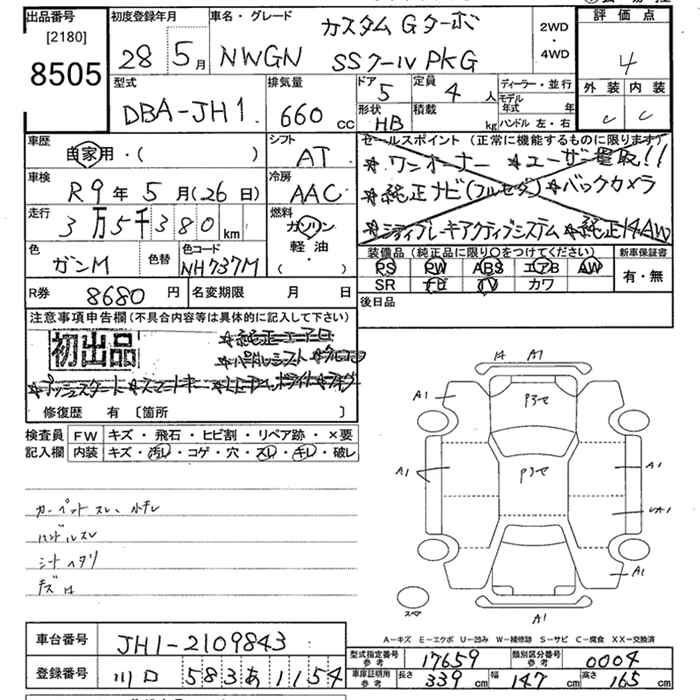 出品番号
[2180]
8505
初度登録年月
28年 5月
車名・グレード
カスタム Gターボ
NWGN SSクールPKG
2WD
・
4WD
評価点
4
外装 内装
C C
型式
DBA-JH1
排気量
660 cc
ドア 5
定員 4人
形状 HB
積載 kg
ディーラー・並行
モデル年式 年
ハンドル 左・右
車歴
自家用・( )
シフト
AT
車検
R9年5月(26日)
冷房
AAC
走行
3万5千380km
燃料
ガソリン
軽油
( ・ )
色
ガンM
色替
色コード
NH737M
セールスポイント (正常に機能するものに限ります)
☆ワンオーナー ☆ユーザー買取!!
☆純正ナビ(フルセグ) ☆バックカメラ
☆シティブレーキアクティブシステム ☆純正14AW
装備品 (純正品に限り○をつけてください)
PS PW ABS エアB AW
SR ナビ TV カワ
新車保証書
有・無
後日品
R券 8680円
名変期限 月 日
注意事項申告欄(不具合内容等は具体的に記入して下さい)
初出品
☆純正エアロ
☆パドルシフト
☆プッシュスタート ☆スマートキー
修復歴 有 〔箇所 〕
検査員記入欄
FW キズ・飛石・ヒビ割・リペア跡・×要
内装 キズ・汚レ・コゲ・穴・スレ・キレ・破レ
カーペットスレ 小キレ
ハンドルスレ
シートヘタリ
キズ 汚
14 A1
A1
P3セ
A1
P3セ
A1
A1
A1
スペア
A1
A－キズ E－エクボ U－凹み W－補修跡 S－サビ C－腐食 XX－交換済
車台番号 JH1-2109843
登録番号 川口 583 あ 1154
型式指定番号 参考 17659
類別区分番号 参考 0004
車庫証明用 参考 長さ 339cm 幅 147cm 高さ 165cm